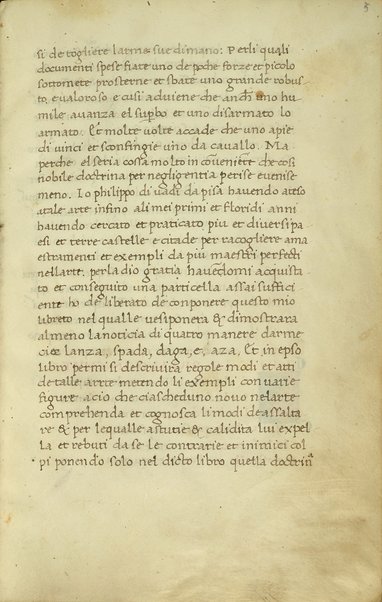 5
si de togliere larme sue di mano: Per li quali
documenti spese fiate uno de poche forze et picolo
sottomete prosterne et sbate uno grande robus
to e ualoroso e cusi adviene che anch uno hu
mile auanza el supbo et uno disarmato lo
armato. Et molte uolte accade che uno apie
di uinci et sconfingie uno da cauallo. Ma
perche el seria cossa molto in cōueniēre che cosi
nobile doctrina per negligentia perise e uenise
meno. Io philippo di uadi da pisa hauendo atteso
a tale arte infino ali mei primi et floridi anni
hauendo cercato et praticato piu et diuersi pa
esi et terre castelle e citade per racogliere ama
estramenti et exempli da piu maestri perfecti
nellarte. per la dio gratia hauēdomi acquista
to et conseguito una particella assai suffici
ente ho de liberato de componere questo mio
libreto nel qualle ue si ponera & dimostrara
al meno la noticia di quatro manere darme
cioe lanza, spada, daga, e, aza. Et in epso
libro per mi si descriuira regole modi et atti
de talle artte metendo li exempli con uarie
figure acio che ciascheduno nouo nel arte
comprehenda et cognosca li modi de assalta
re & per le qualle astutie & calidita lui expel
la et rebuti da se le contrarie et inimici col
pi ponendo solo nel dicto libro quella doctrinᵃ